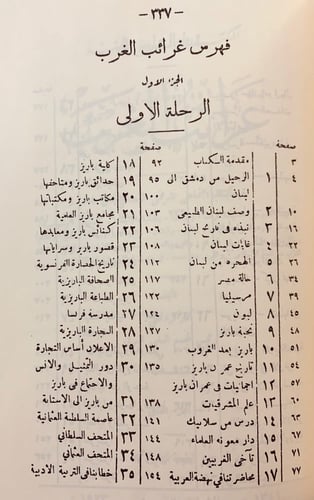 — ٣٣٧ —
فهرس غرائب الغرب
الجزء الاول
الرحلة الاولى
صفحة
٣ مقدمة الكتاب
٤ ١ الرحيل من دمشق الى
لبنان
١٠ ٢ وصف لبنان الطبيعي
١٦ ٣ نبذة في تاريخ لبنان
٢٢ ٤ غابات لبنان
٢٦ ٥ الهجرة من لبنان
٣٤ ٦ حالة مصر
٣٩ ٧ مرسيليا
٤٥ ٨ ليون
٤٨ ٩ تحية باريز
٥١ ١٠ باريز بعد الغروب
٥٤ ١١ تاريخ عمران باريز
٥٧ ١٢ اجماليات في عمران باريز
٦٣ ١٣ علم المشرقيات
٦٧ ١٤ درس من سلانيك
٧١ ١٥ دار معونة العلماء
٧٤ ١٦ تآخي الغربيين
٧٧ ١٧ محاضر تنافي نهضة العربية
صفحة
٩٢ ١٨ كلية باريز
٩٥ ١٩ حدائق باريز ومتاحفها
١٠٠ ٢٠ مكاتب باريز ومكتباتها
١٠٣ ٢١ مجامع باريز العلمية
١٠٦ ٢٢ كنائس باريز ومعابدها
١٠٨ ٢٣ قصور باريز وسراياتها
١١٢ ٢٤ تاريخ الحضارة الفرنسوية
١١٧ ٢٥ الصحافة الباريزية
١٢٢ ٢٦ الطباعة الباريزية
١٢٤ ٢٧ مدرسة فرنسا
١٢٧ ٢٨ التجارة الباريزية
١٣٠ ٢٩ الاعلان أساس التجارة
١٣٥ ٣٠ دور التمثيل والانس
والاجتماع في باريز
١٣٨ ٣١ من باريز الى الاستانة
١٤١ ٣٢ عاصمة السلطنة العثمانية
١٤٤ ٣٣ المتحف السلطاني
١٤٨ ٣٤ المتحف العثماني
١٥٤ ٣٥ خطابنا في التربية الادبية